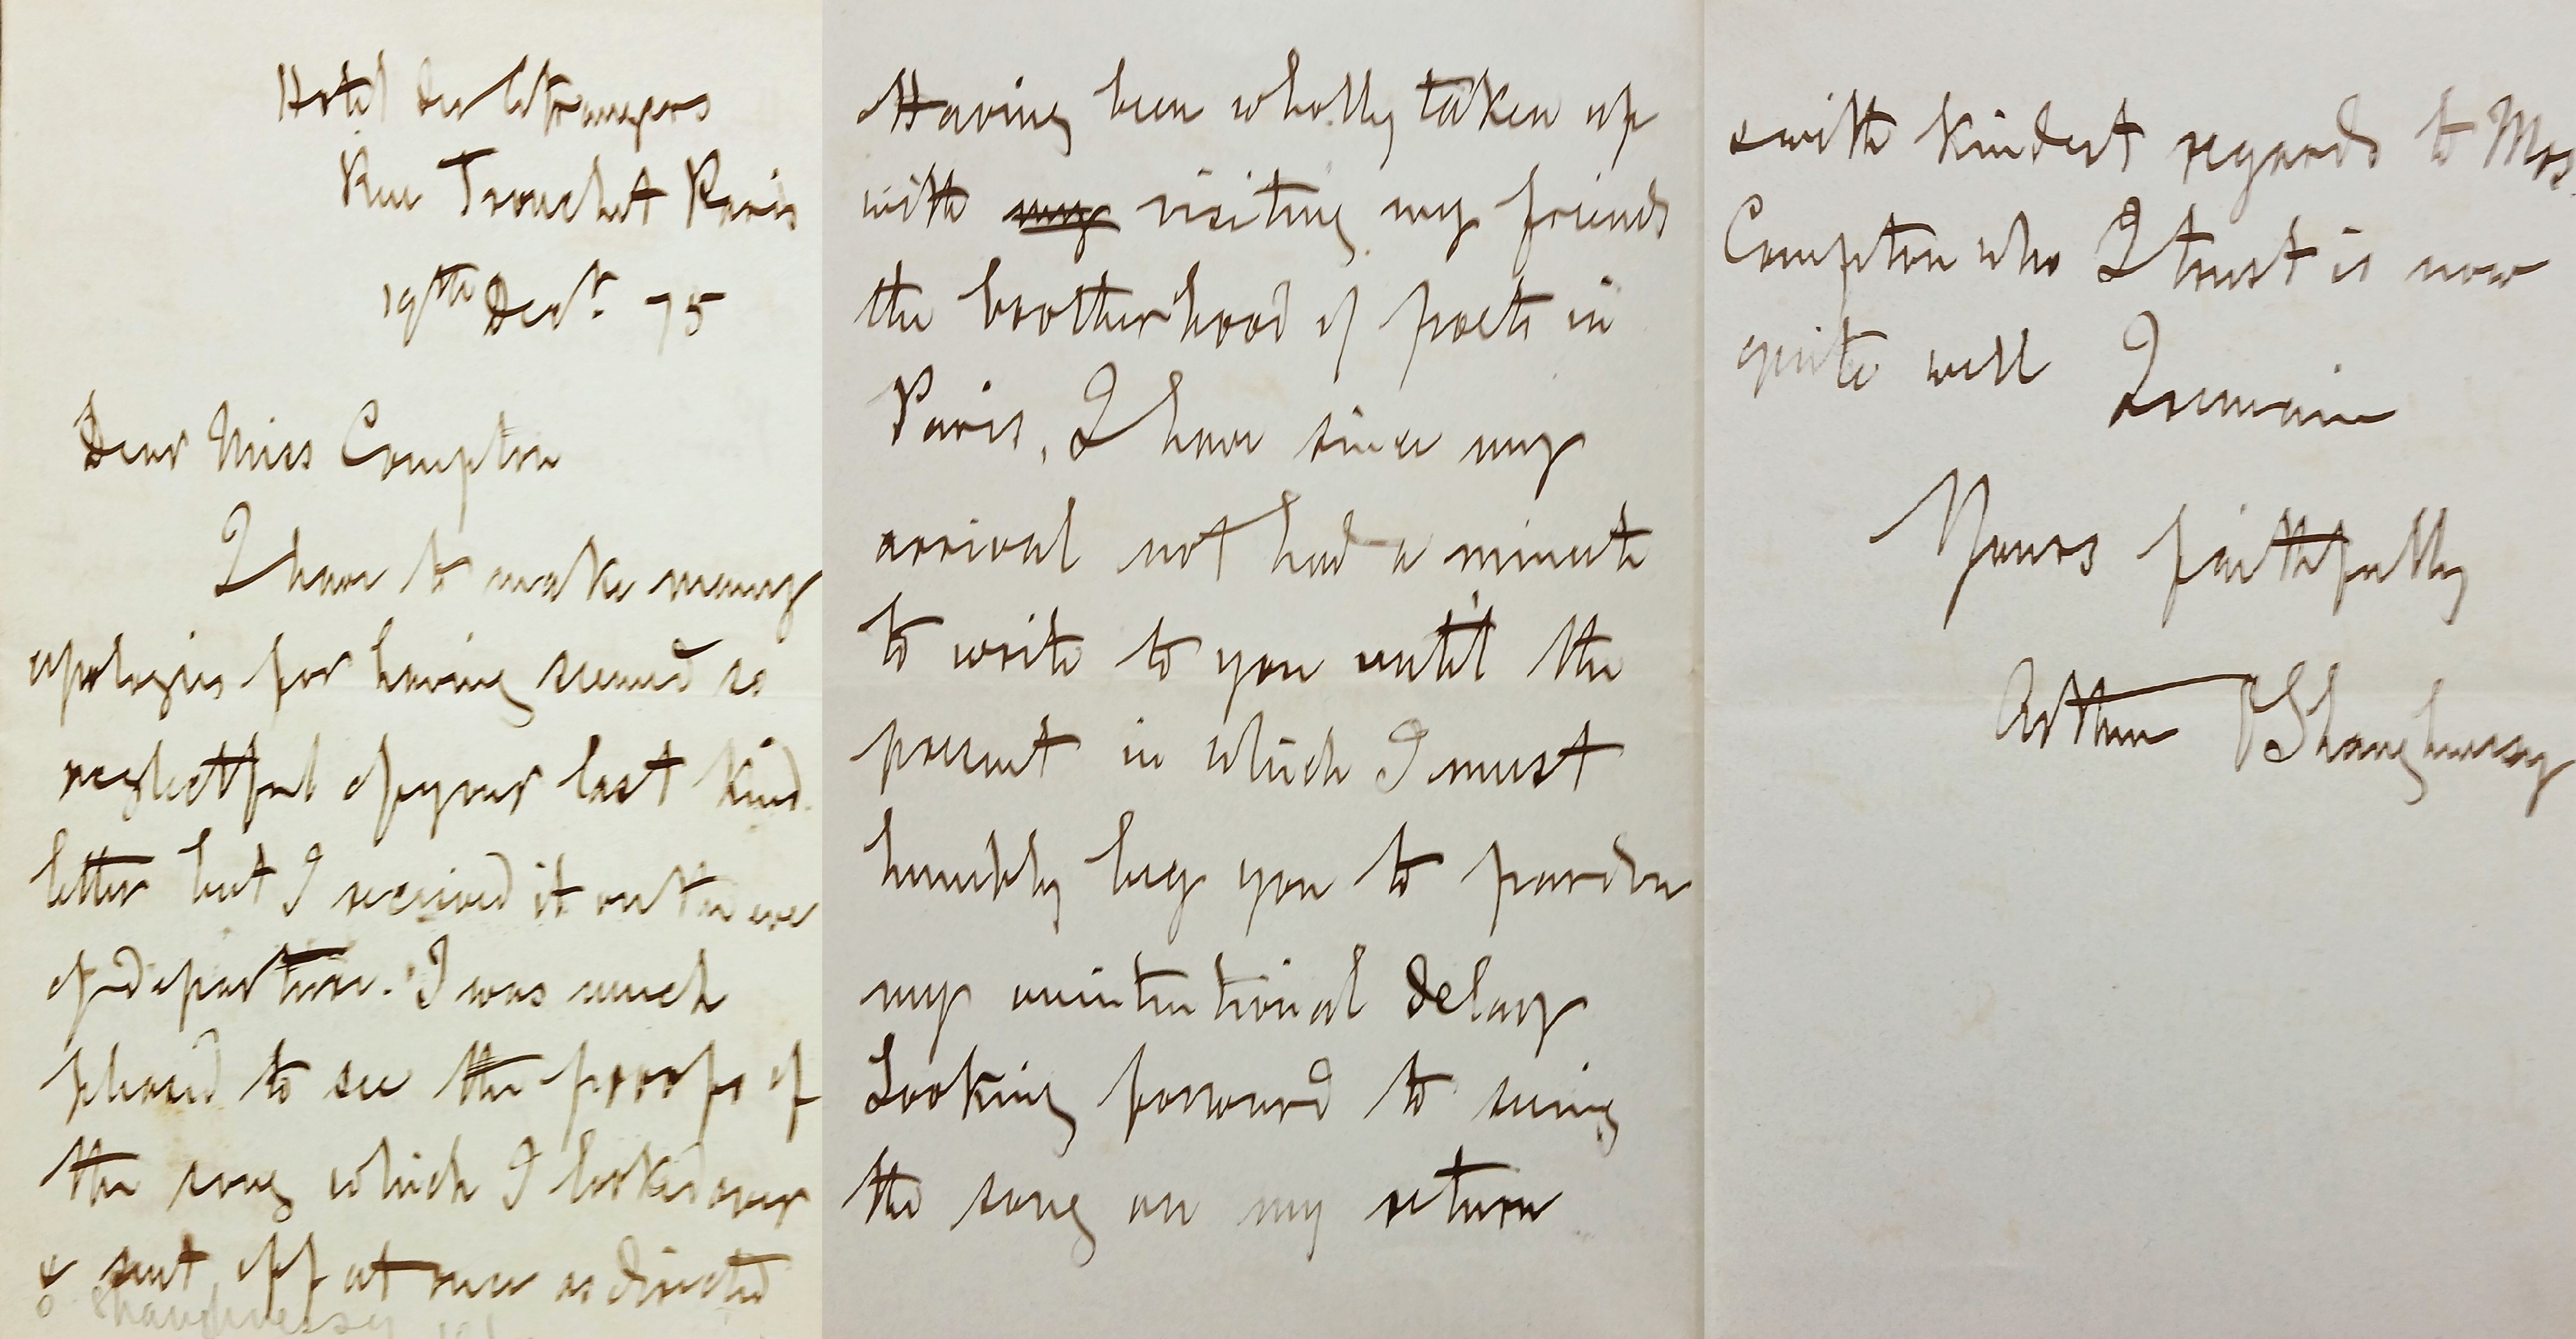 Hotel des Etrangers
Rue Tronchet Paris
19th Decr. 75
Dear Miss Compton
I have to make many
apologies for having seemed so
neglectful of your last kind
letter but I received it on the eve
of departure. I was much
pleased to see the proofs of
the song which I looked over
& sent off at once as directed
O'Shaughnessy
Having been wholly taken up
with my visiting my friends
the brotherhood of poets in
Paris, I have since my
arrival not had a minute
to write to you until the
present in which I must
humbly beg you to pardon
my unintentional delay
Looking forward to seeing
the song on my return
& with kindest regards to Mrs
Compton who I trust is now
quite well I remain
Yours faithfully
Arthur O'Shaughnessy